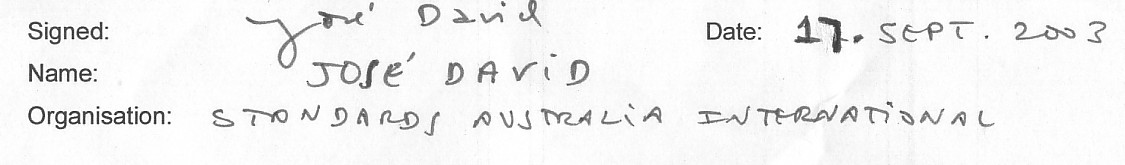 Signed: José David Date: 17. SEPT. 2003
Name: JOSÉ DAViD
Organisation: STANDARDS AUSTRALiA INTERNATiONAL